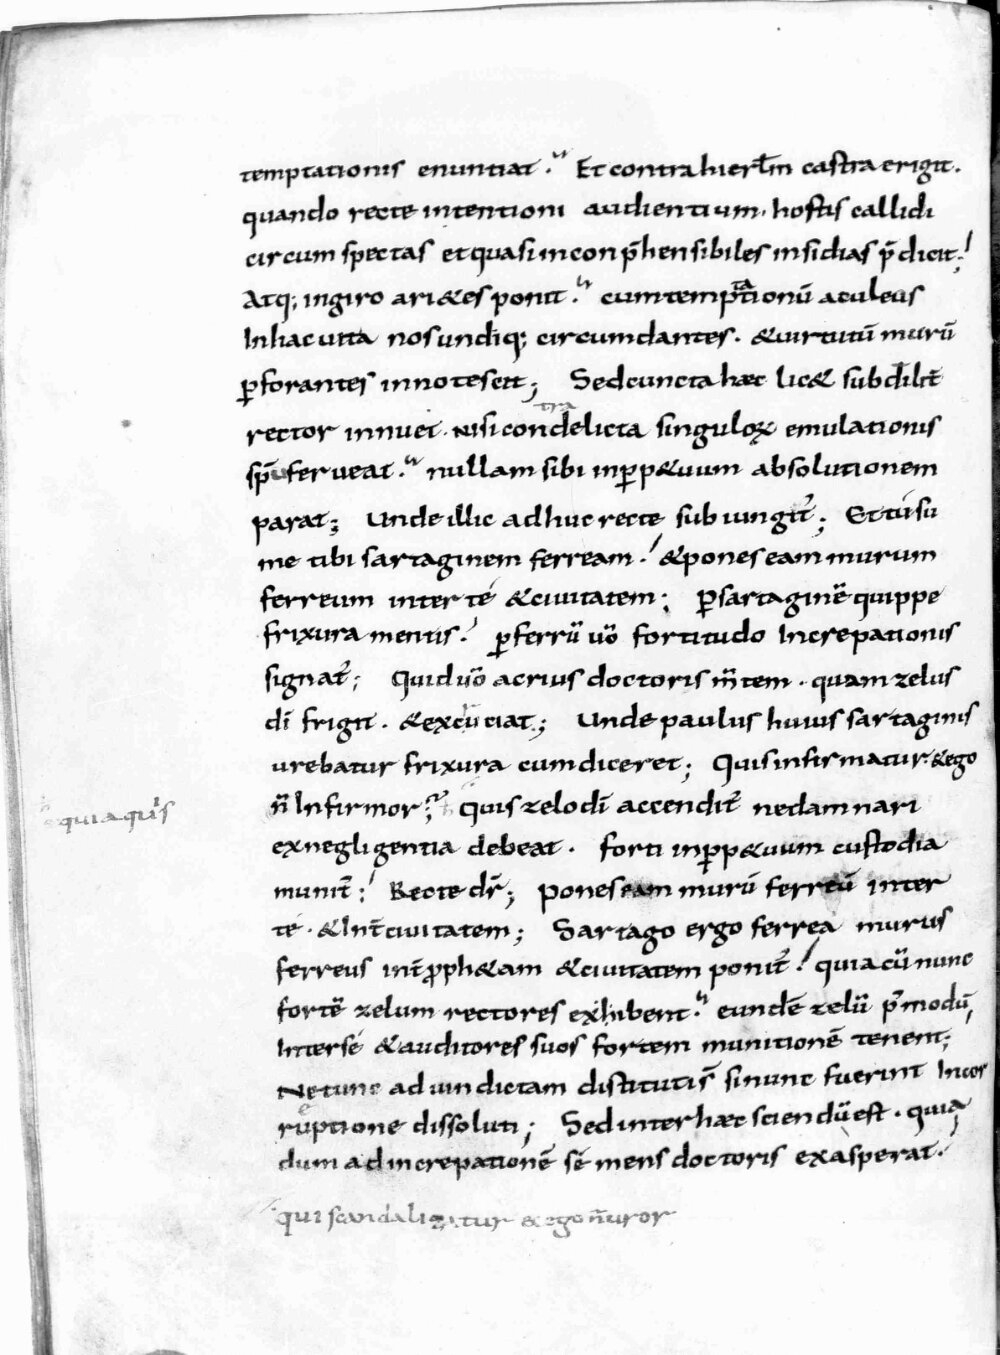 temptationis enuntiat. Et contra hierłm castra erigit.
quando recte intentioni audientium. hostis callidi
circumspectas et quasi incon p̄hensibiles insidias p̄dicit;
Atq; in giro ari&es ponit. cum temp̄tationū aculeus
In hac uita nos undiq; circumdantes. & uirtutū murū
ꝑforantes innotescit; Sed cuncta haec lic& subdił&#773;
rector innuet. Nisi contra delicta singuloꝝ emulationis
sp̄u ferueat. nullam sibi inꝑp&uum absolutionem
parat; Unde illic adhuc recte subiungit̄; Et tú su
me tibi sartaginem ferream. & pones eam murum
ferreum inter té & ciuitatem; Ꝑ sartaginē quippe
frixura mentis. ꝑ ferrū uō fortitudo Increpationis
signat̄; Quid uō acrius doctoris m̄tem. quam zelus
dī frigit. & excruciat; Unde paulus huius sartaginis
urebatur frixura cum diceret; Quis infirmatur. & ego
n̄ Infirmor; Quis zelo dī accendit̄ ne damnari
quia quis
ex negligentia debeat. forti inꝑp&uum custodia
munit̄; Recte dr̄; Pones eam murū ferreū inter
té. & Int̄ ciuitatem; Sartago ergo ferrea murus
ferreus int̄ ꝓph&am & ciuitatem ponit̄. quia cū nunc
fortē zelum rectores exhibent. eundē zelū p̄modū,
Inter sé & auditores suos fortem munitionē tenent;
Ne tunc ad uindictam distituti s̄ si nunc fuerint In cor
reptione dissoluti; Sed inter haec sciendū est. quia
dum ad increpationē sē mens doctoris exasperat.
qui scandalizatur & ego n̄ uror